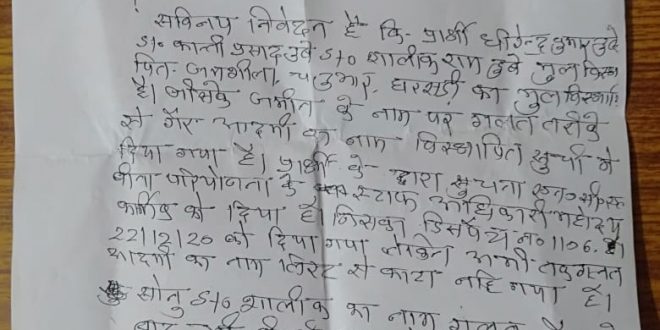 सविनय निवेदन है कि- प्रार्थी धीरेन्द्र कुमार दुबे
S/o काली प्रसाद दुबे S/o शालीक राम दुबे मुल
पित- जमशीला, घरसड़ी का मुल
है। जीसके जमीन के नाम पर गलत तरीके
से गैर आदमी का नाम विस्थापित सुची मे
दिया गया है। प्रार्थी के द्वारा सुचना
बीना परियोजना के स्टाफ अधिकारी महोदय
कार्मिक को दिया है। जिसका डिस्पैच न० 1106. है।
22/12/20 को दिया गया लेकिन अभी तक गलत
आदमी का नाम लिस्ट से काटा नहि गया है।
सोनु S/o शालीक का नाम गलत